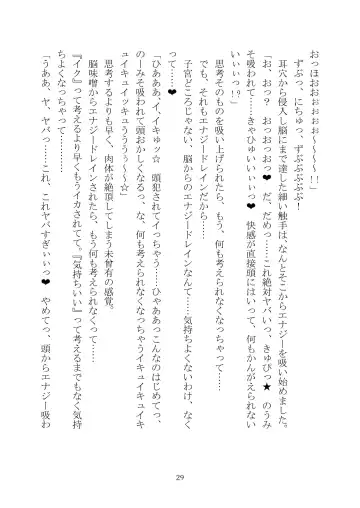 おっほおおぉぉぉぉ～～～～！！
ずぶっ、にちゅっ、ずぶぶぶぶ！
耳穴から侵入し脳にまで達した細い触手は、なんとそこからエナジーを吸い始めました。
「お、おっ？　おっおっおっ❤　だ、だめっ……これ絶対ヤバいっ、きゅぴっ★　のうみ
そ吸われて……きゃひゅいいぃぃっ❤　快感が直接頭にはいって、何もかんがえられない
いぃぃっ！？」
思考そのものを吸い上げられたら、もう、何も考えられなくなっちゃって……
でも、それもエナジードレインだから……
子宮どころじゃない、脳からのエナジードレインなんて……気持ちよくないわけ、なく
って……❤
「ひああああ❤イ、イキゅッ☆　頭犯されてイっちゃう……ひゃああっこんなのはじめてっ、
のーみそ吸われて頭おかしくなるっ、な、何も考えられなくなっちゃうイキュイキュイキ
ュイキュイッキュうううぅぅ～～～☆」
思考するよりも早く、肉体が絶頂してしまう未曾有の感覚。
脳味噌からエナジードレインされたら、もう何も考えられなくって……
『イク』って考えるより早くもうイカされてて。『気持ちいい』って考えるまでもなく気持
ちよくなっちゃって……
「うああ、ヤ、ヤバっ……これ、これヤバすぎぃぃっ❤　やめてっ、頭からエナジー吸わ
29